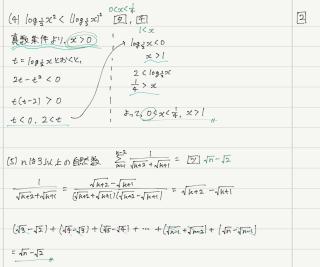 (4) log½x² < (log½x)² ウ, エ
0<x<¼
1<x
2
真数条件より、x>0
t = log½xとおくと、
2t - t² < 0
t(t-2) > 0
t<0, 2<t
log½x<0
x>1
2<log½x
¼>x
よって、0<x<¼, x>1
(5) nは3以上の自然数 1/(√k+2 + √k+1) = √n-√2
1/(√k+2+√k+1) = (√k+2-√k+1)/((√k+2+√k+1)(√k+2-√k+1)) = √k+2-√k+1
(√3-√2)+(√4-√3)+(√5-√4)+ … +(√n-1-√n-2)+(√n-√n-1)
= √n-√2